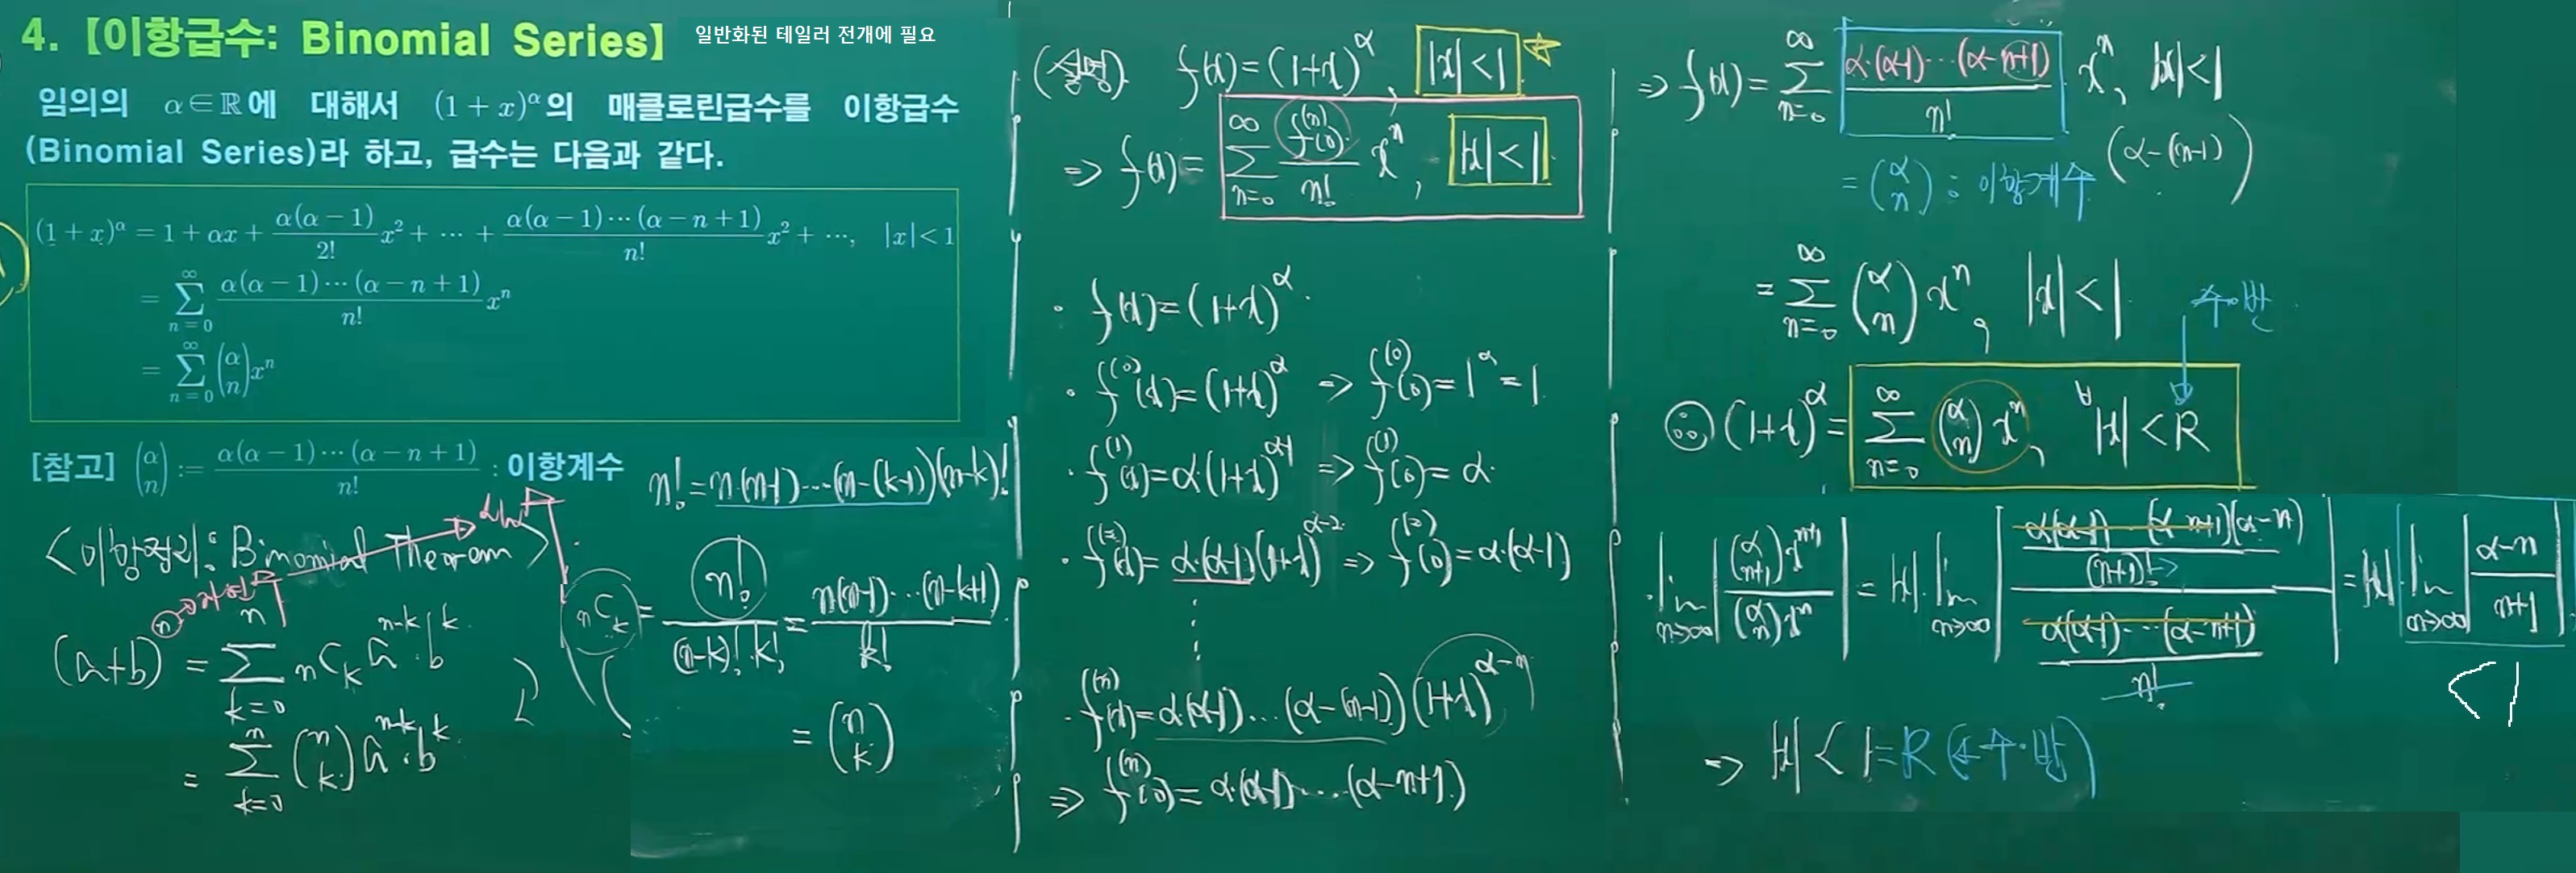 4. 【이항급수: Binomial Series】 일반화된 테일러 전개에 필요
임의의 α∈ℝ에 대해서 (1+x)^α의 매클로린급수를 이항급수
(Binomial Series)라 하고, 급수는 다음과 같다.
(1+x)^α = 1 + αx + α(α−1)/2! x² + ⋯ + α(α−1)⋯(α−n+1)/n! x² + ⋯, |x|<1
= ∑_{n=0}^{∞} α(α−1)⋯(α−n+1)/n! x^n
= ∑_{n=0}^{∞} (α n) x^n
[참고] (α n) := α(α−1)⋯(α−n+1)/n! : 이항계수
<이항정리: Binomial Theorem>
n → 자연수
(a+b)^n = ∑_{k=0}^{n} nCk a^{n-k}·b^k
= ∑_{k=0}^{n} (n k) a^{n-k}·b^k
n! = n·(n-1)⋯(n-(k-1))(n-k)!
nCk = n!/((n-k)!·k!) = n(n-1)⋯(n-k+1)/k!
= (n k)
(설명) f(x) = (1+x)^α, |x|<1 ☆
⇒ f(x) = ∑_{n=0}^{∞} f^{(n)}(0)/n! x^n, |x|<1
· f(x) = (1+x)^α.
· f^{(0)}(x) = (1+x)^α ⇒ f^{(0)}(0) = 1^α = 1
· f^{(1)}(x) = α·(1+x)^{α-1} ⇒ f^{(1)}(0) = α.
· f^{(2)}(x) = α·(α-1)(1+x)^{α-2} ⇒ f^{(2)}(0) = α·(α-1)
⋮
· f^{(n)}(x) = α·(α-1)⋯(α-(n-1))(1+x)^{α-n}
⇒ f^{(n)}(0) = α·(α-1)⋯(α-n+1)
⇒ f(x) = ∑_{n=0}^{∞} α·(α-1)⋯(α-n+1)/n! x^n, |x|<1
(α-(n-1))
= (α n) : 이항계수
= ∑_{n=0}^{∞} (α n) x^n, |x|<1
수·반
∴ (1+x)^α = ∑_{n=0}^{∞} (α n) x^n, ∀|x|<R
· lim_{n→∞} |(α n+1)x^{n+1} / (α n)x^n| = |x|·lim_{n→∞} |α(α-1)⋯(α-n+1)(α-n)/(n+1)! / α(α-1)⋯(α-n+1)/n!| = |x| lim_{n→∞} |α-n / n+1|
<1
⇒ |x|<1=R